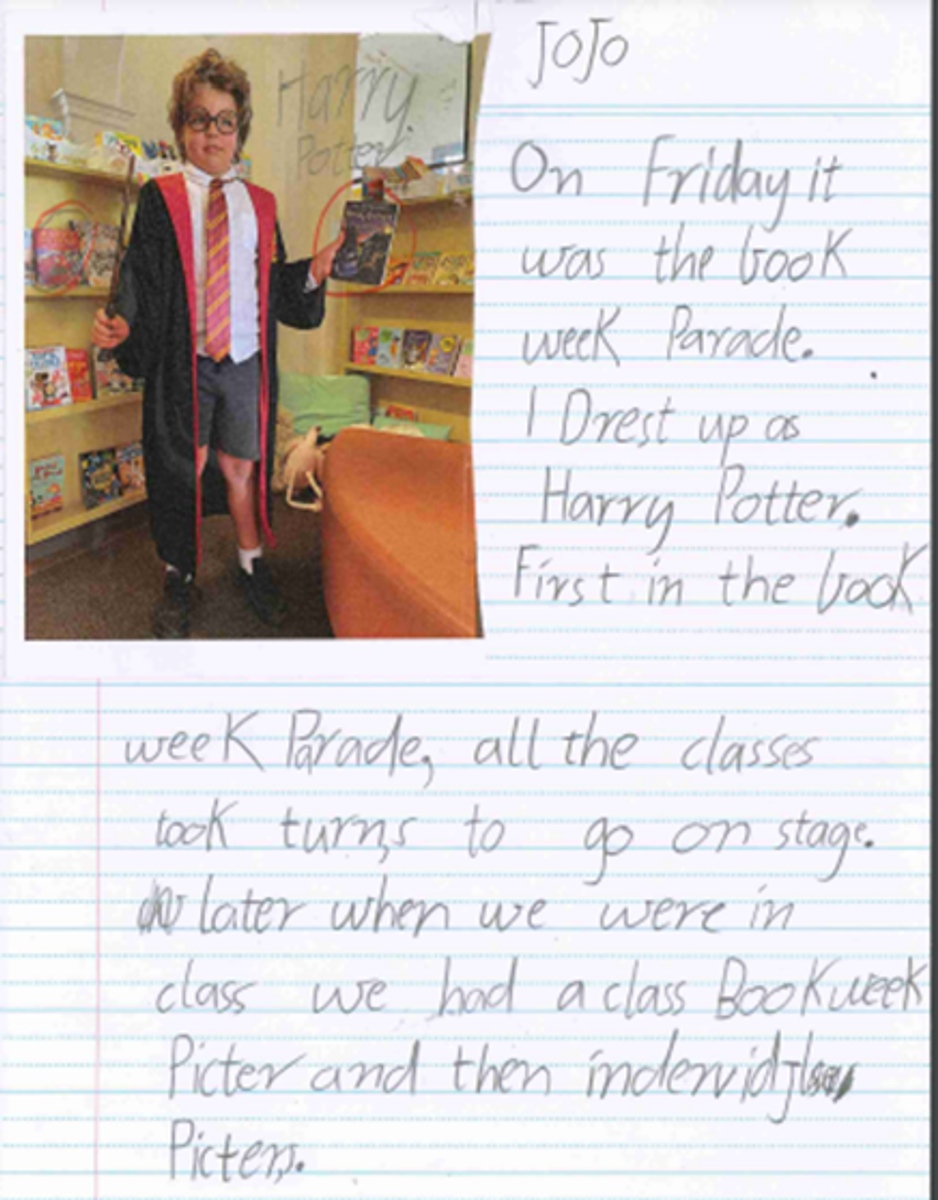 JoJo
Harry
Potter
On Friday it
was the book
week Parade.
I Drest up as
Harry Potter.
First in the book
week Parade, all the classes
took turns to go on stage.
later when we were in
class we had a class Book week
Picter and then
Picters.